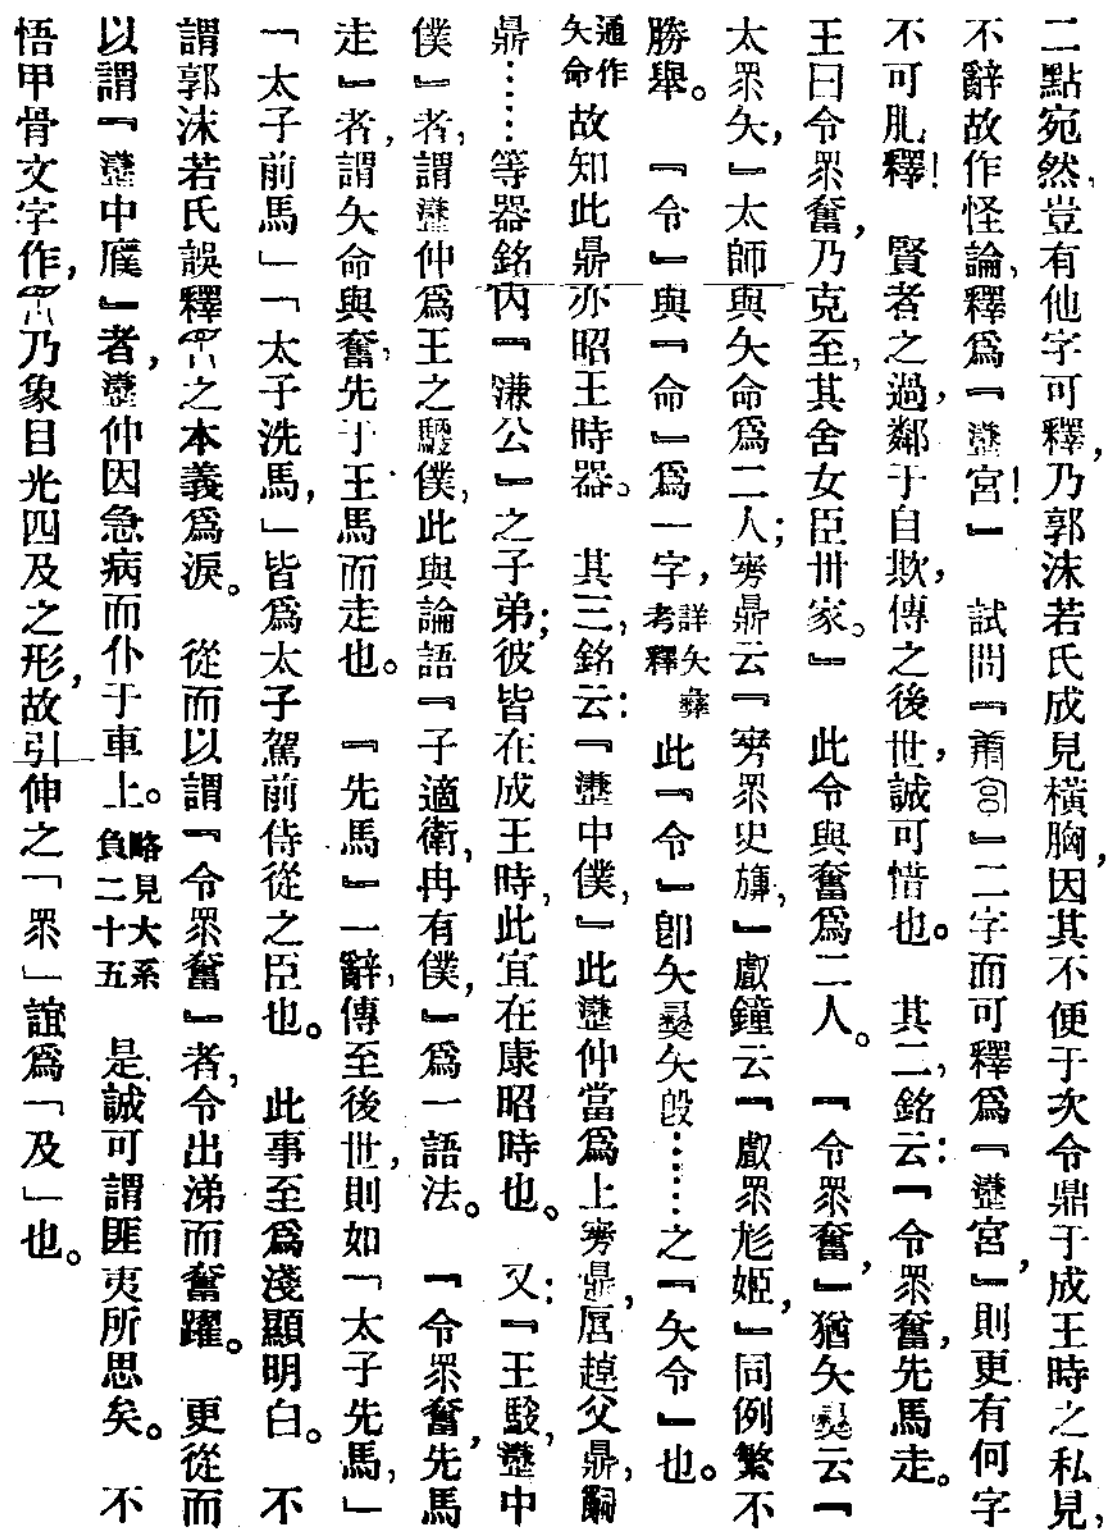 二點宛然，豈有他字可釋，乃郭沫若氏成見橫胸，因其不便于次令鼎于成王時之私見，
不辭故作怪論，釋爲『𤅊宮！』　試問『』二字而可釋爲『𤅊宮，』則更有何字
不可肊釋！　賢者之過，鄰于自欺，傳之後世，誠可惜也。　其二，銘云：『令眔奮，先馬走。
王曰令眔奮，乃克至，其舍女臣卅家。』　此令與奮爲二人。　『令眔奮，』猶矢彝云『
太眔矢，』太師與矢命爲二人；鼎云『眔史旟，』䖒鐘云『䖒眔彪姬，』同例繁不
勝舉。　『令』與『命』爲一字，詳矢彝考釋　此『令』卽矢彝矢㲃……之『矢令』也。
通作矢命　故知此鼎亦昭王時器。　其三，銘云：『𤅊中僕，』此𤅊仲當爲上鼎，趠父鼎，嗣
鼎……等器銘內『溓公』之子弟；彼皆在成王時，此宜在康昭時也。　又：『王，𤅊中
僕』者，謂𤅊仲爲王之僕，此與論語『子適衛，冉有僕，』爲一語法。　『令眔奮，先馬
走』者，謂矢命與奮，先于王馬而走也。　『先馬』一辭，傳至後世，則如「太子先馬，」
「太子前馬」「太子洗馬，」皆爲太子駕前侍從之臣也。　此事至爲淺顯明白。　不
謂郭沫若氏誤釋眔之本義爲淚。　從而以謂『令眔奮』者，令出涕而奮躍。　更從而
以謂『𤅊中僕』者，𤅊仲因急病而仆于車上。略見大系負二十五　是誠可謂匪夷所思矣。　不
悟甲骨文字作，乃象目光四及之形，故引伸之「眔」誼爲「及」也。